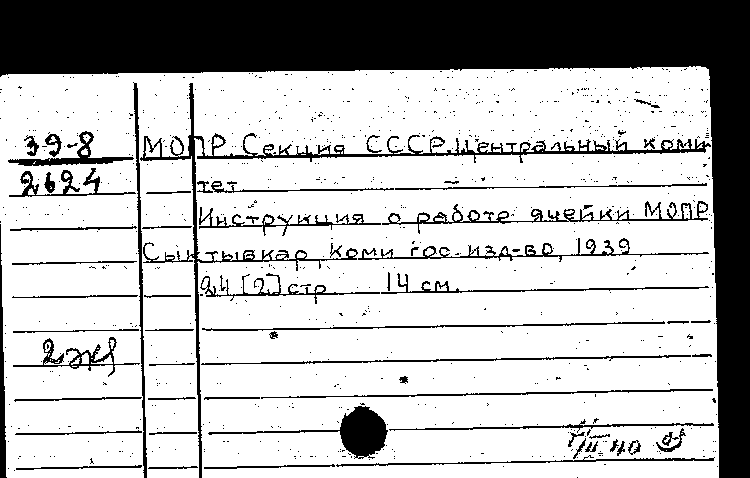 39-8 МОПР. Секция СССР. Центральный коми-
2624 тет
Инструкция о работе ячейки МОПР
Сыктывкар, Коми гос. изд-во, 1939
24, [2] стр. 14 см.